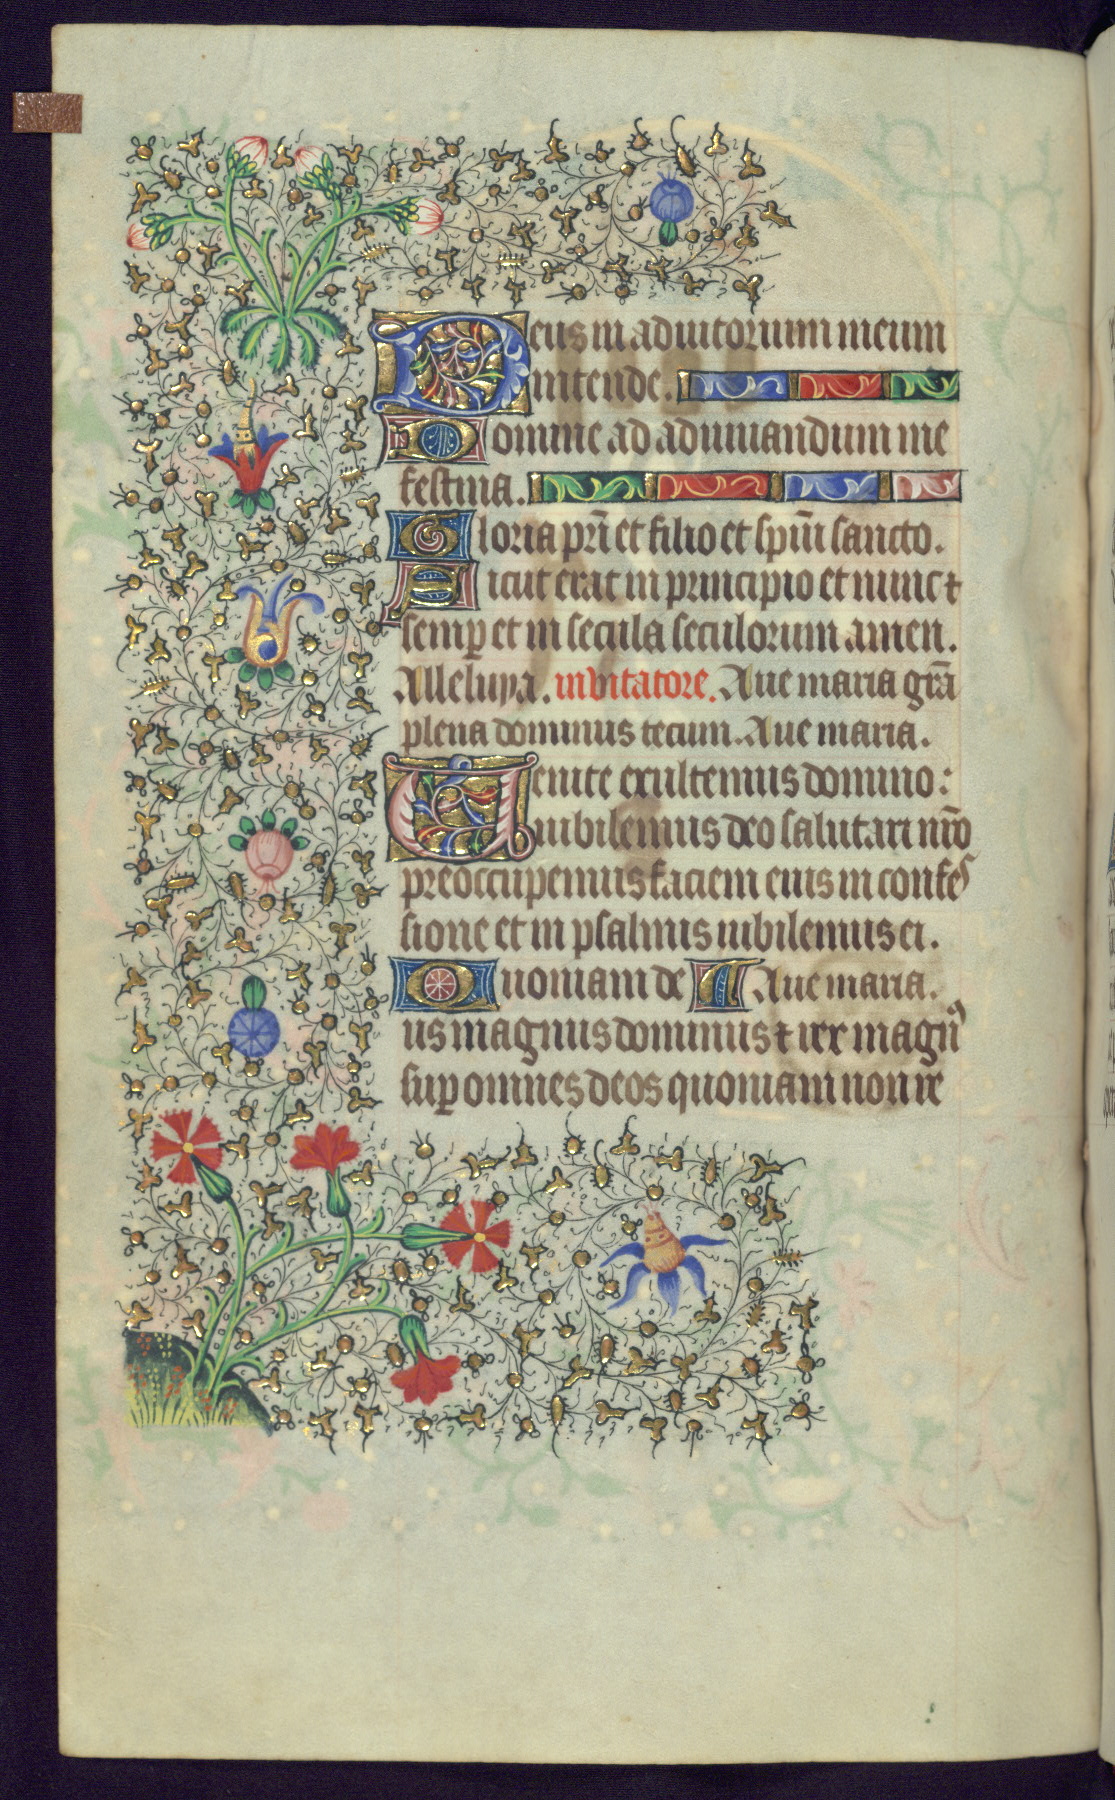 Deus in adiutorium meum
intende.
Domine ad adiuuandum me
festina.
Gloria pr̄i et filio et spūi sancto.
Sicut erat in principio et nunc ⁊
semꝑ et in secula seculorum amen.
Alleluya. inuitatore. Aue maria grā
plena dominus tecum. Aue maria.
Uenite exultemus domino:
iubilemus deo salutari nr̄o
preoccupemus faciem eius in confes
sione et in psalmis iubilemus ei.
Quoniam de Aue maria.
us magnus dominus ⁊ rex magn᷒
suꝑ omnes deos quoniam non re